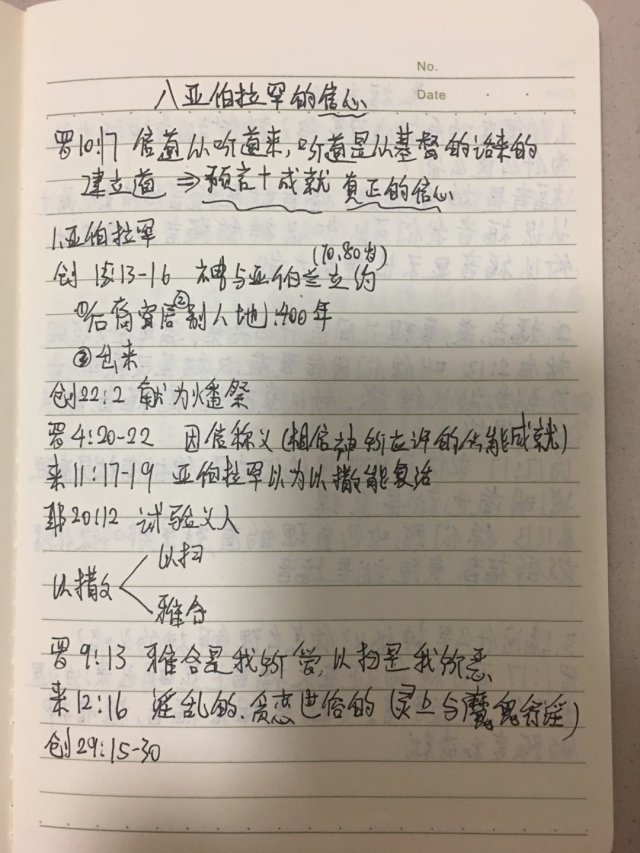 No.
Date
八亚伯拉罕的信心
罗10:17 信道从听道来,听道是从基督的话来的
建立道 ⇒ 预言+成就 真正的信心
1.亚伯拉罕
(70,80岁)
创15:13-16 神与亚伯兰立约
①后裔寄居②别人地:400年
③出来
创22:2 献为燔祭
罗4:20-22 因信称义(相信神所应许的必能成就)
来11:17-19 亚伯拉罕以为以撒能复活
耶20:12 试验义人
以扫
以撒
雅各
罗9:13 雅各是我所爱,以扫是我所恶
来12:16 淫乱的.贪恋世俗的(灵上与魔鬼行淫)
创29:15-30